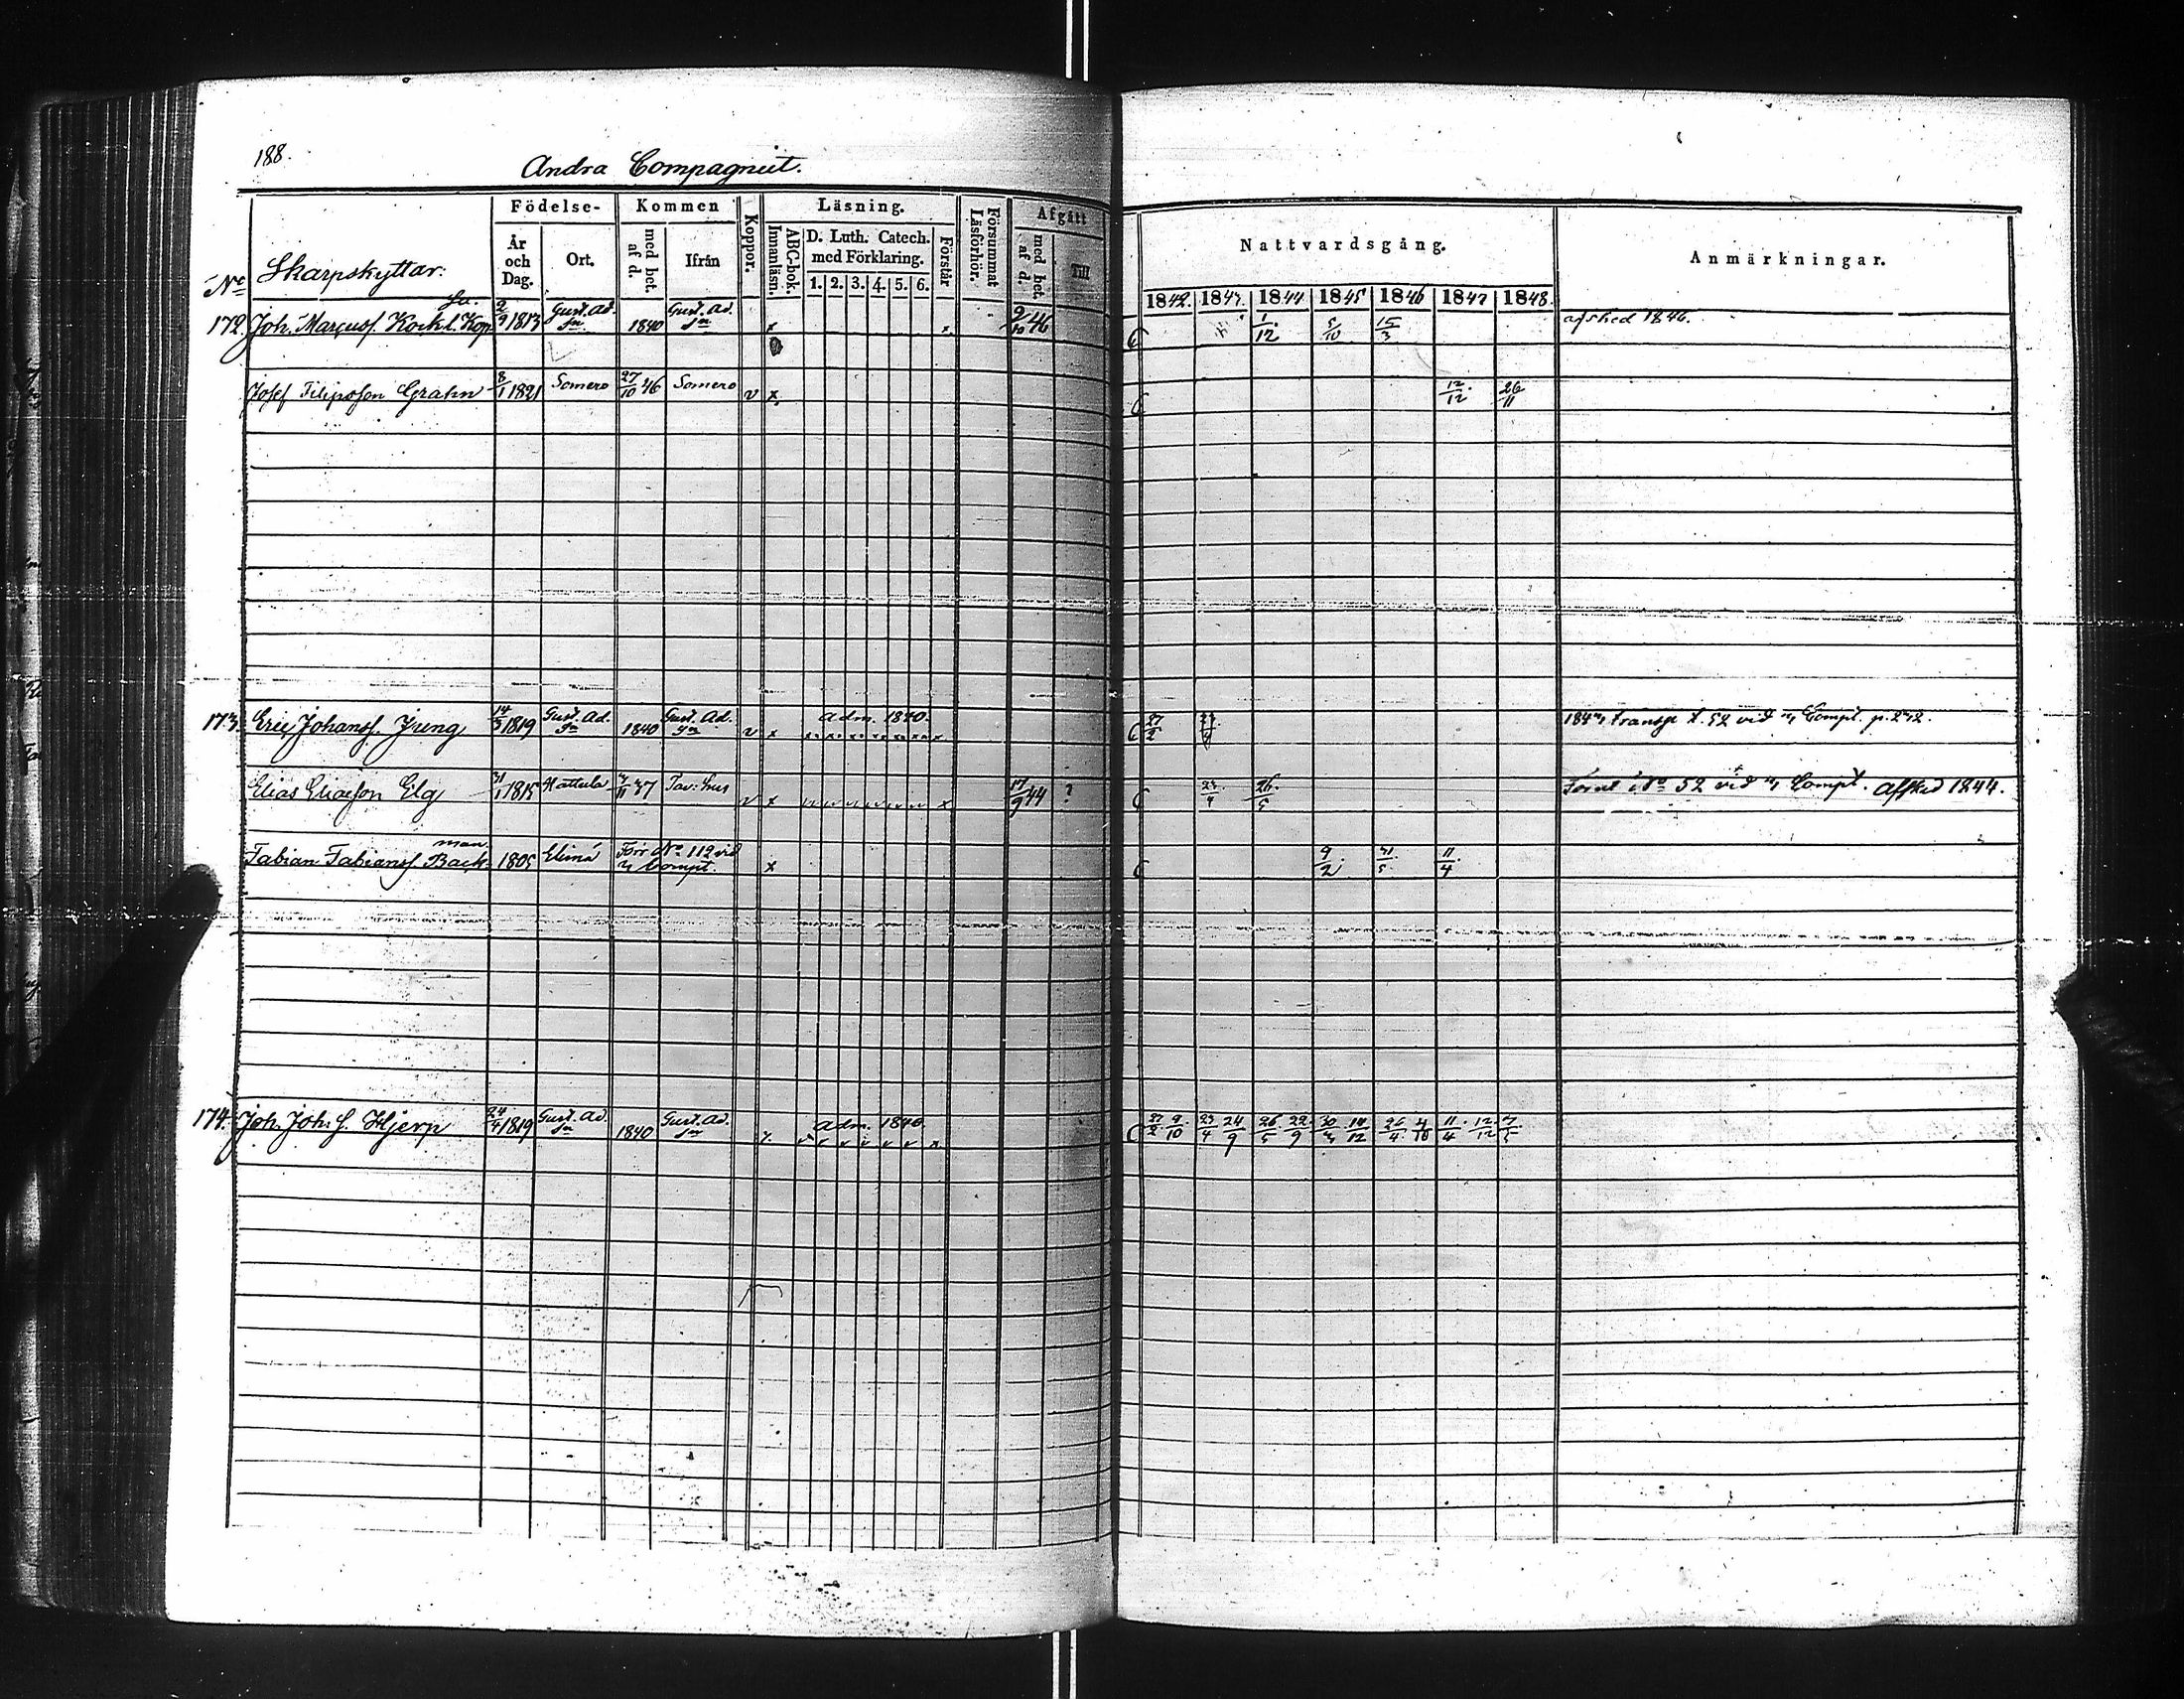 188.
Andra Compagniet.
No Skarpskyttar:
Födelse-
År och Dag.
Ort.
Kommen
med bet. af d.
Ifrån
Koppor.
Läsning.
ABC-bok. Innanläsn.
D. Luth. Catech. med Förklaring.
1. 2. 3. 4. 5. 6.
Förstår
Försummat Läsförhör.
Afgått
med bet. af d.
Till
Nattvardsgång.
1842. 1843. 1844 1845 1846 1847 1848.
Anmärkningar.
172. Joh. Marcuss. Kockl. Kop 1813 Gust. Ad. Sn 1840 Gust. Ad. Sn x x 9/10 46 C 1/12 5/10 15/3 afsked 1846.
Josef Filipsson Grahn 8/1 1821 Somero 27/10 46 Somero v x C 12/12 26/11
173. Eric Johanss. Jung 14/3 1819 Gust. Ad. Sn 1840 Gust. Ad. Sn v x Adm. 1840. C 27/2 23/4
Elias Eliasson Elg 31/1 1815 Hattula 37 Tav:hus v x x 17/9 44 ? C 23/4 26/5 No 52 vid Compt. Afsked 1844.
man
Fabian Fabianss Back 1805 Elimä Förr No 112 vid Compt. x C 9/2 31/5 11/4
174. Joh. Joh. S. Hjerp 24/4 1819 Gust. Ad. Sn 1840 Gust. Ad. Sn Adm. 1840. x C 27/2 9/10 23/4 24/9 26/5 22/9 30/3 14/12 26/4 4/10 11/4 12/12 7/5